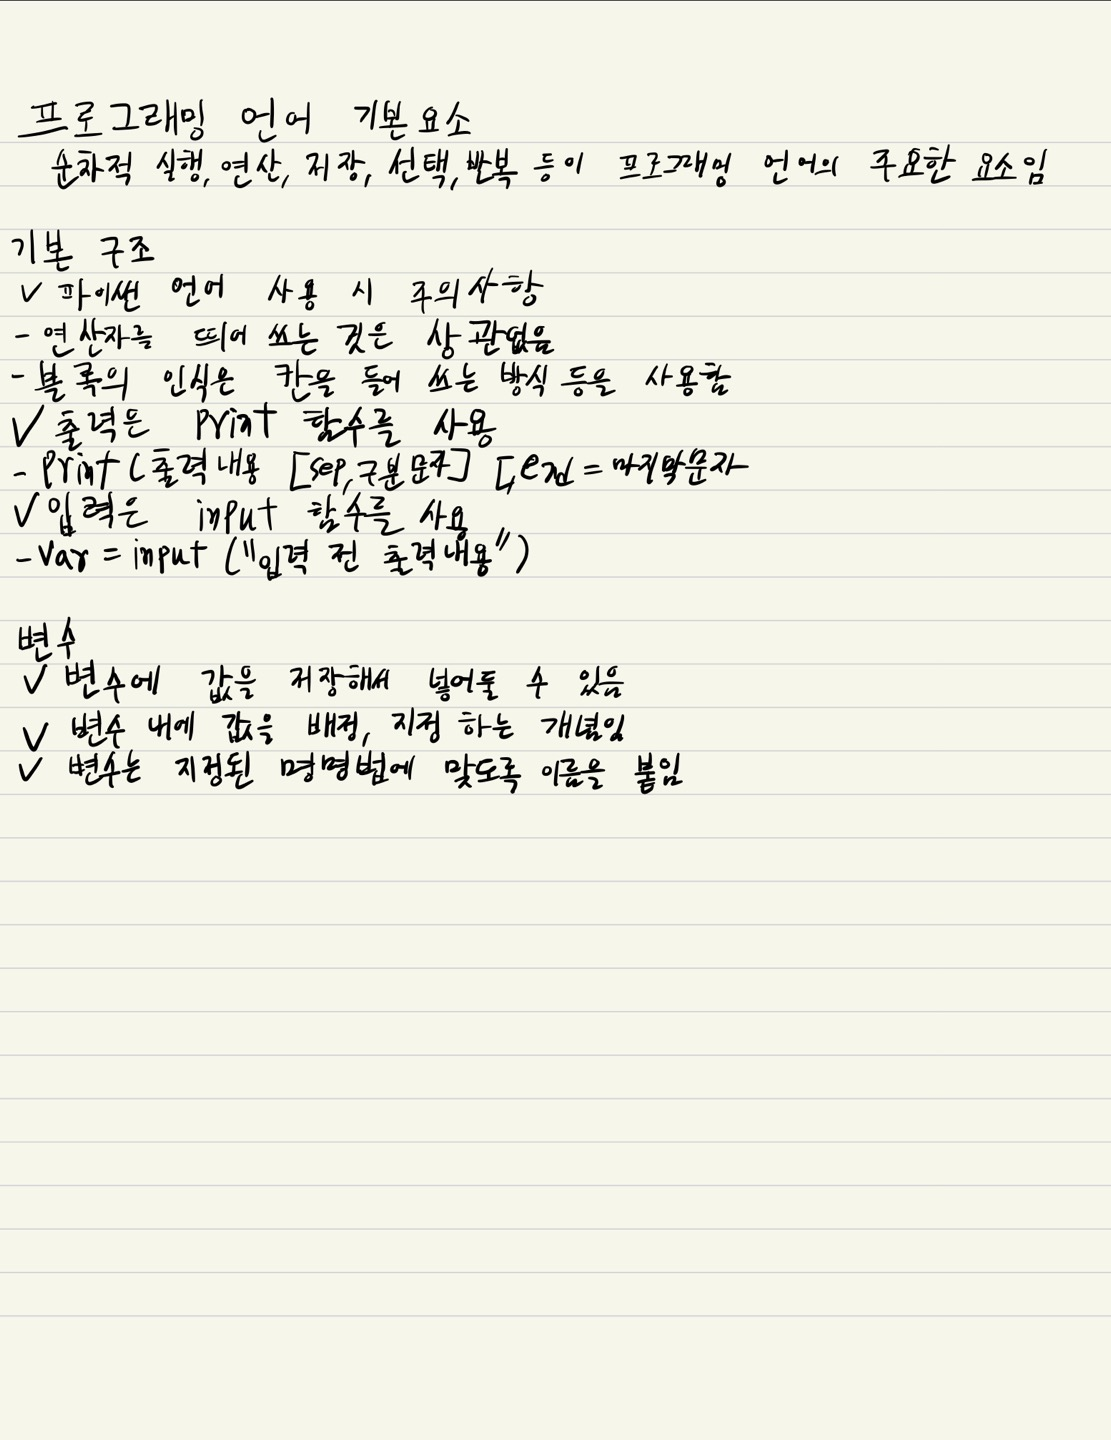 프로그래밍 언어 기본요소
순차적 실행, 연산, 저장, 선택, 반복 등이 프로그래밍 언어의 주요한 요소임
기본 구조
✓ 파이썬 언어 사용 시 주의사항
- 연산자를 띄어 쓰는 것은 상관없음
- 블록의 인식은 칸을 들어 쓰는 방식 등을 사용함
✓ 출력은 print 함수를 사용
- print(출력내용 [sep, 구분문자] [, = 마지막문자
✓ 입력은 input 함수를 사용
- Var = input ("입력 전 출력내용")
변수
✓ 변수에 값을 저장해서 넣어둘 수 있음
✓ 변수 내에 값을 배정, 지정 하는 개념임
✓ 변수는 지정된 명명법에 맞도록 이름을 붙임